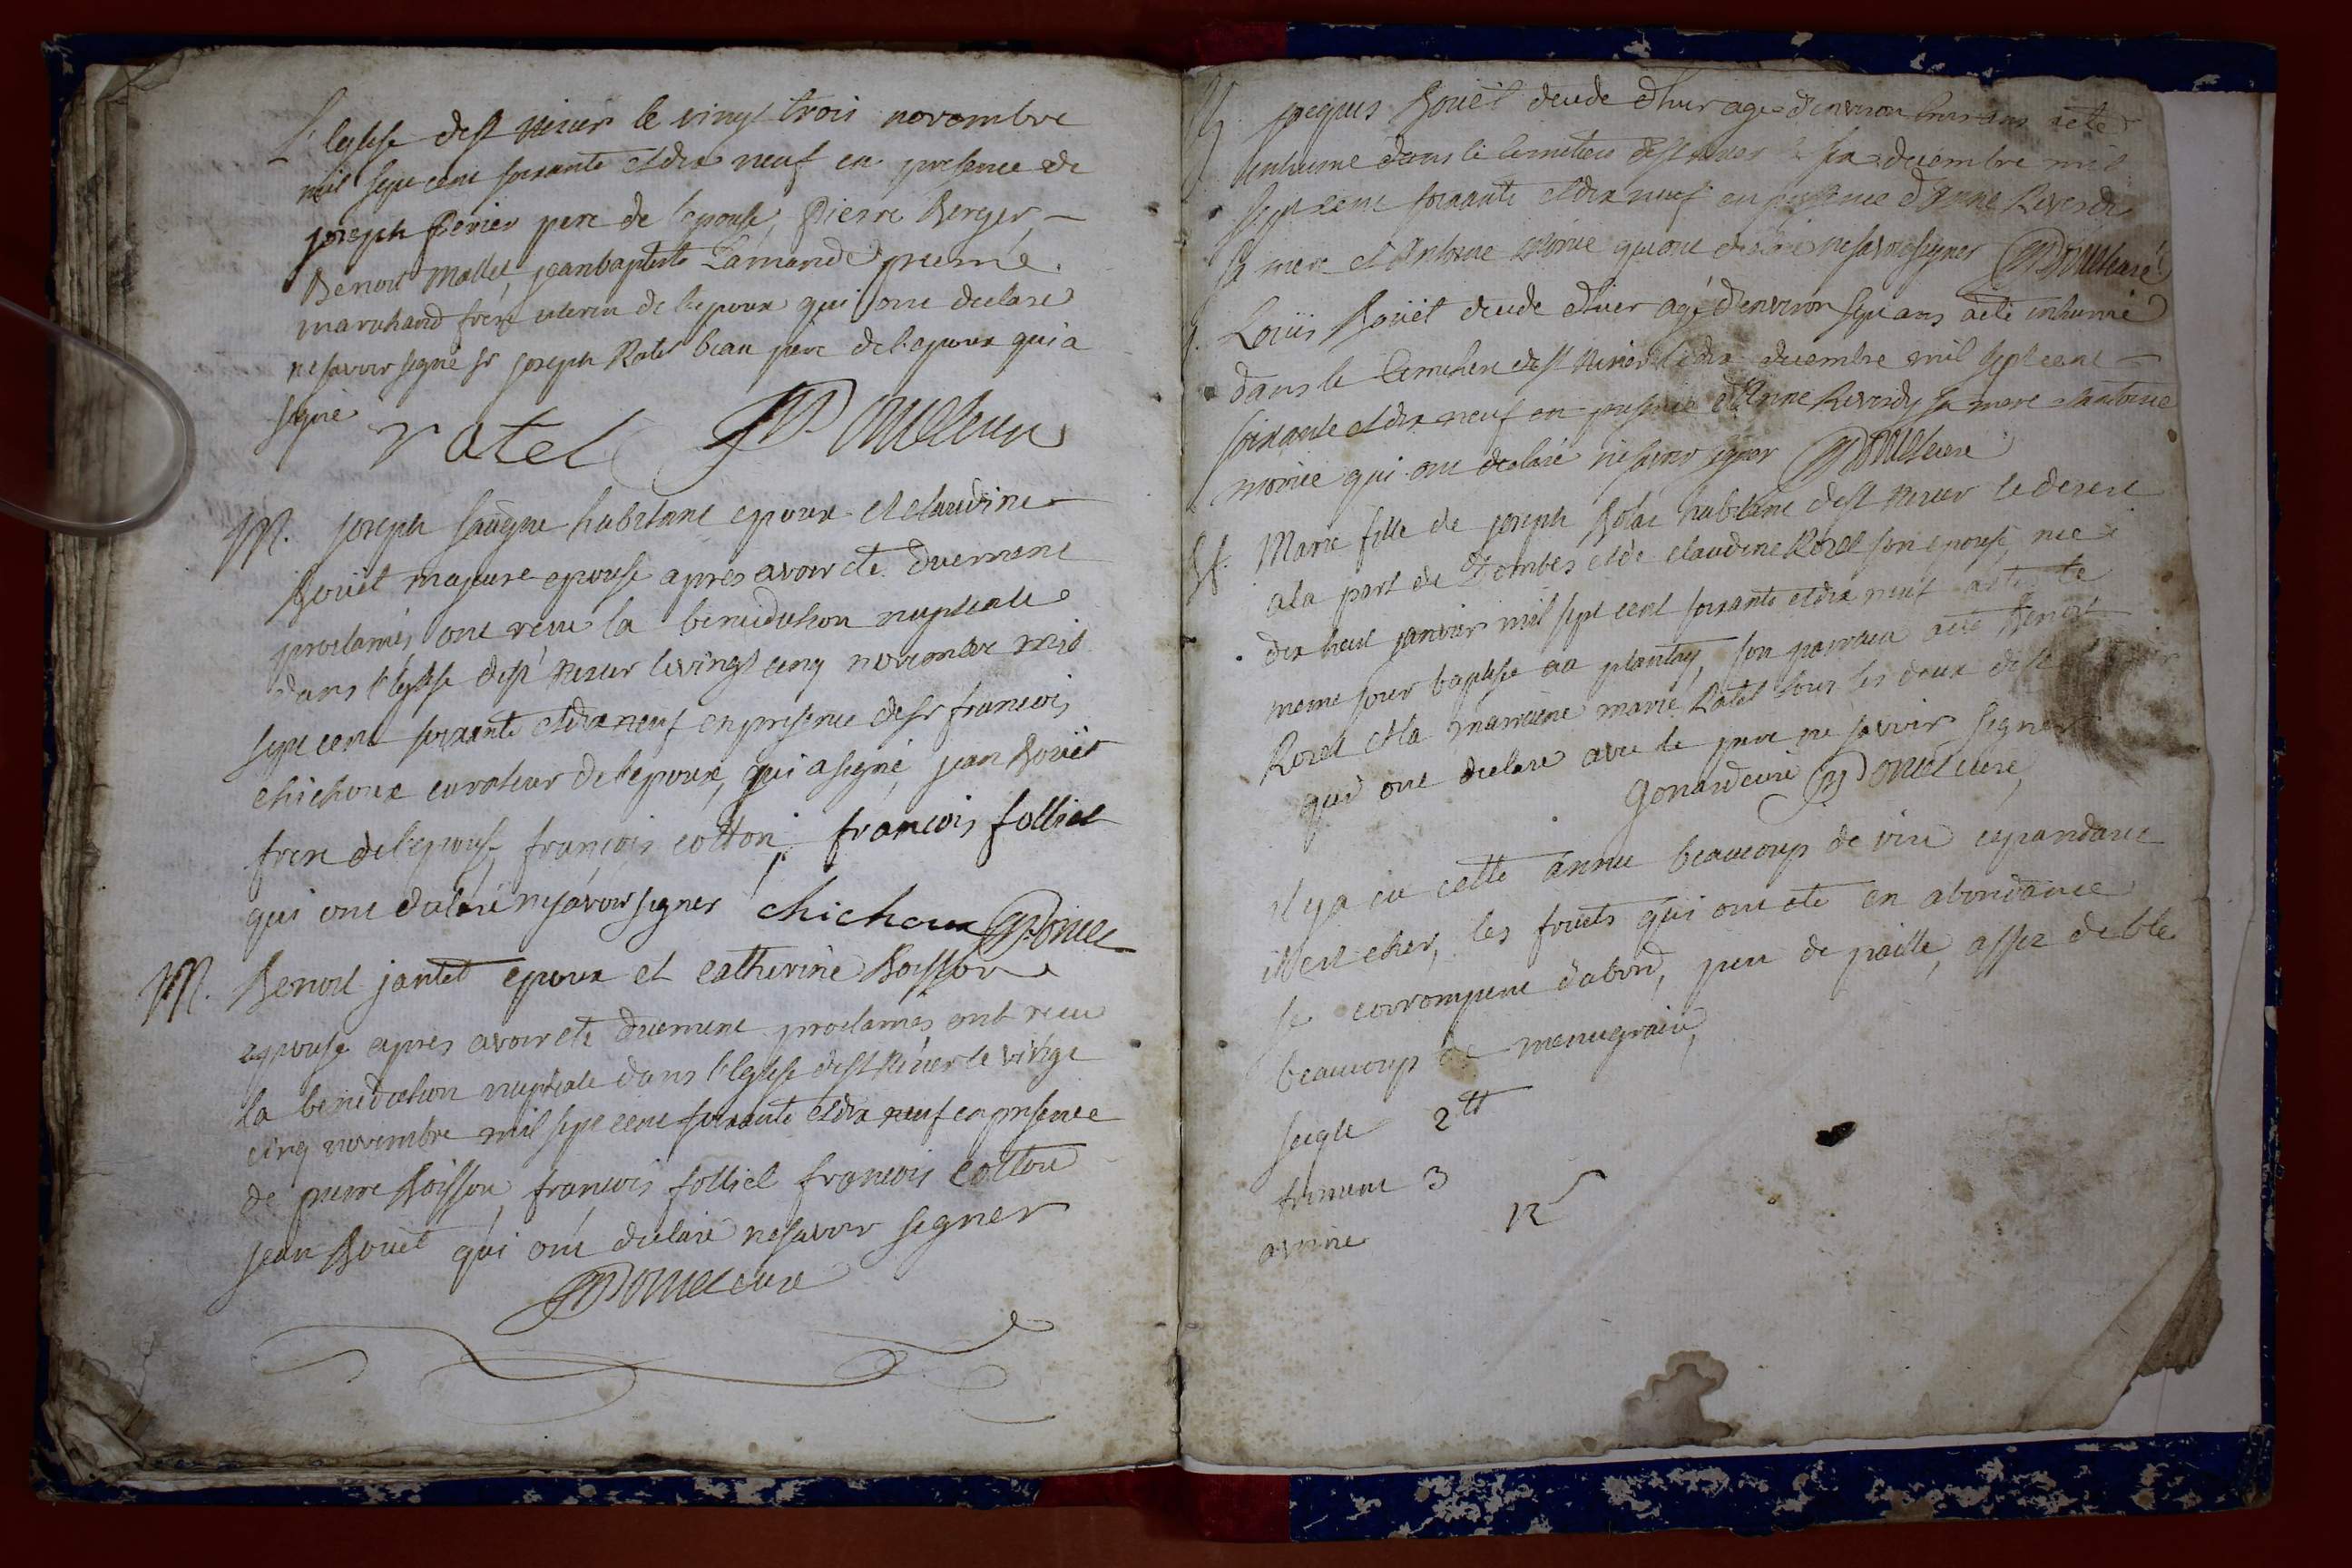 L'eglise de st nizier le vingt trois novembre
mil sept cent soixante et dix neuf en presence de
joseph perier pere de l'epouse, pierre Berger,
Benoit Mollet, jean baptiste Lamande
marchand frere uterin de l'epoux qui ont declaré
ne savoir signé sr joseph Ratel beau pere de l'epoux qui a
signé ratel
M. joseph Sauegne habitant epoux et claudine
Bouët majeure epouse apres avoir eté duement
proclamés ont recu la benediction nuptiale
dans l'eglise de st nizier le vingt cinq novembre mil
sept cent soixante et dix neuf en presence de sr francois
chichoux curateur de l'epoux, qui a signé, jean Bouët
frere de l'epouse, françois cotton, françois folliet
qui ont declaré ne savoir signer chichoux
M. Benoit jantet epoux et catherine Boisson
epouse apres avoir eté duement proclamés ont recu
la benediction nuptiale dans l'eglise de st nizier le vingt
cinq novembre mil sept cent soixante et dix neuf en presence
de pierre Boisson, françois folliet françois cotton
jean Bouët qui ont declaré ne savoir signer
curé
jacques Bouët decedé d'hier agé d'environ trois ans a eté
inhumé dans le cimetiere de st nizier le six decembre mil
sept cent soixante et dix neuf en presence d'Anne Reverdy
sa mere et Antoine morice qui ont declaré ne savoir signer curé
Louis Bouët decedé d'hier agé d'environ sept ans a eté inhumé
dans le cimetiere de st nizier le dix decembre mil sept cent
soixante et dix neuf en presence d'Anne Reverdy sa mere et antoine
morice qui ont declaré ne savoir signer curé
Marie fille de joseph Bolac habitant de st nizier le desert
a la part de Dombes et de claudine Rozet son epouse, née
dix huit janvier mil sept cent soixante et dix neuf a eté le
meme jour baptisée au plantay, son parrain a eté Benoit
Rozet et la marraine marie Ratel tous les deux de st
qui ont declaré avec le pere ne savoir signer
Gonard curé curé
il y a eu cette année beaucoup de vin cependant
il est cher, les fruits qui ont eté en abondance
se corrompent d'abord, peu de paille, assez de blé
beaucoup de menu grain,
seigle 2 tt
froment 3
avoine 12 s